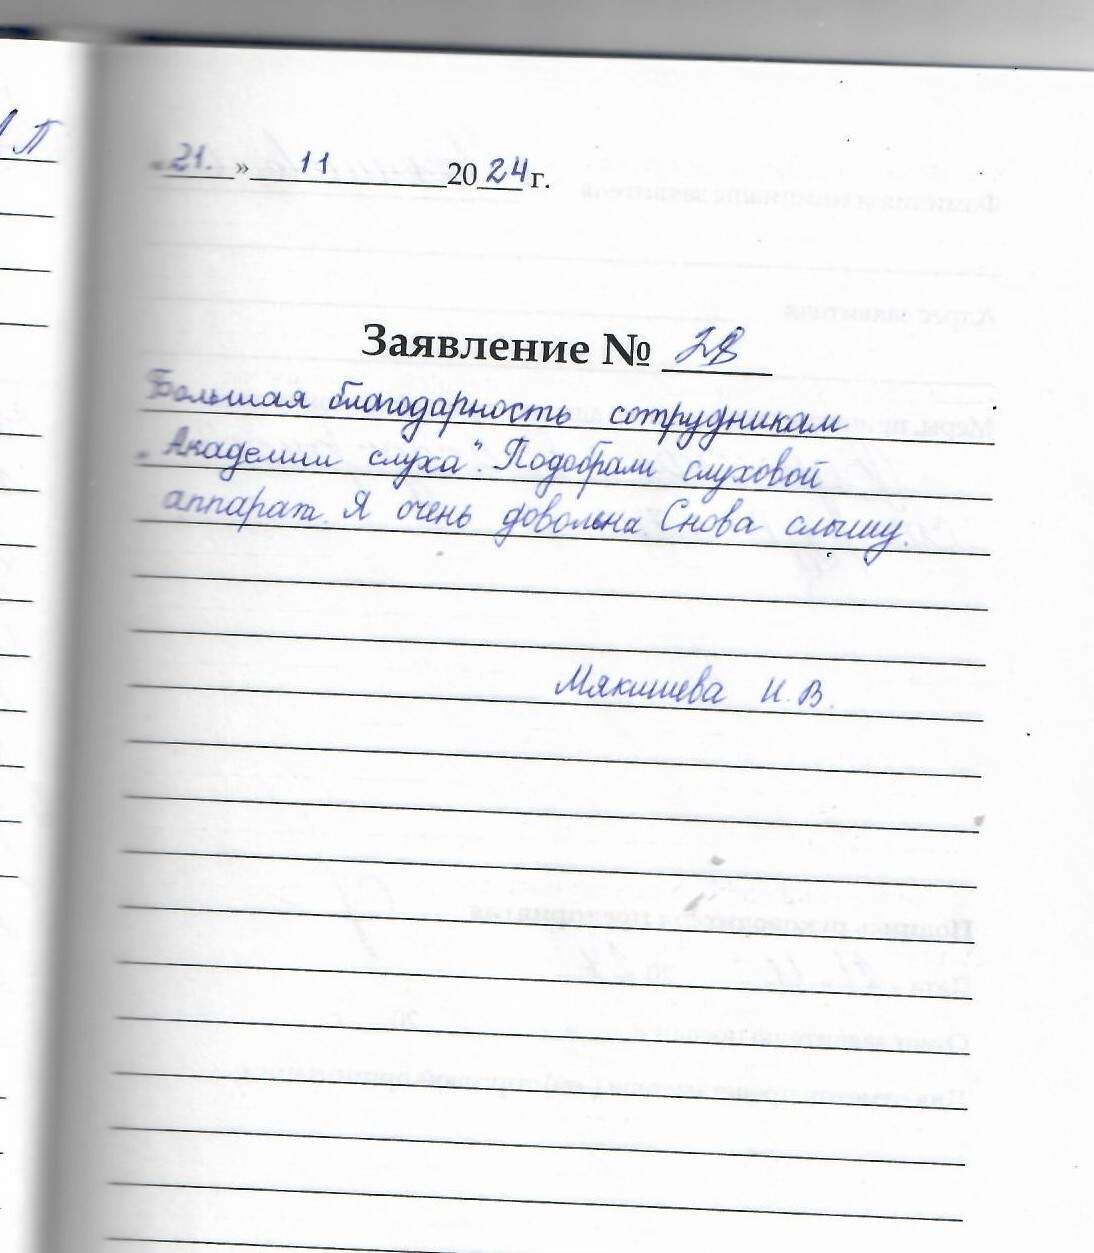 П
« 21. » 11 2024 г.
Заявление № 28
Большая благодарность сотрудникам
„Академии слуха“. Подобрали слуховой
аппарат. Я очень довольна. Снова слышу.
Мякишева И. В.